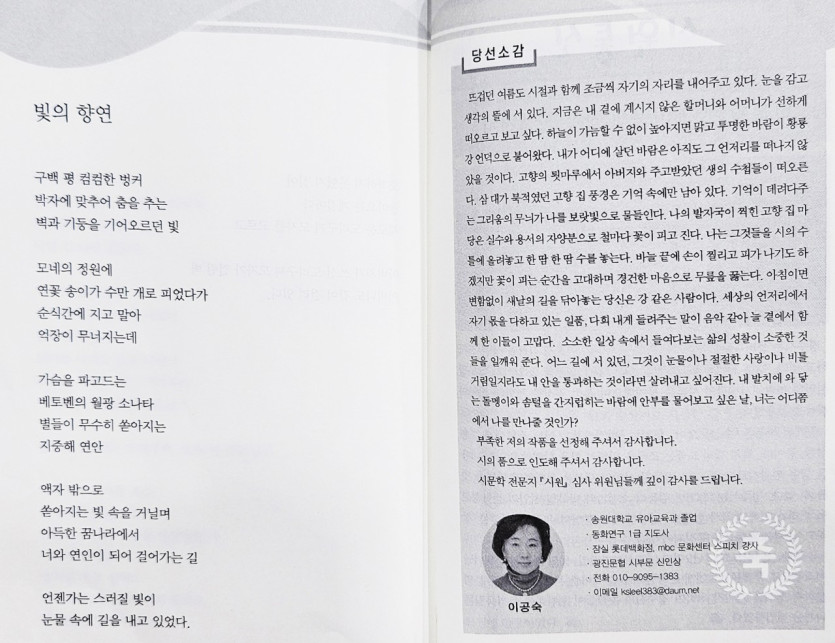 빛의 향연
구백 평 컴컴한 벙커
박자에 맞추어 춤을 추는
벽과 기둥을 기어오르던 빛
모네의 정원에
연꽃 송이가 수만 개로 피었다가
순식간에 지고 말아
억장이 무너지는데
가슴을 파고드는
베토벤의 월광 소나타
별들이 무수히 쏟아지는
지중해 연안
액자 밖으로
쏟아지는 빛 속을 거닐며
아득한 꿈나라에서
너와 연인이 되어 걸어가는 길
언젠가는 스러질 빛이
눈물 속에 길을 내고 있었다.
당선소감
뜨겁던 여름도 시절과 함께 조금씩 자기의 자리를 내어주고 있다. 눈을 감고
생각의 뜰에 서 있다. 지금은 내 곁에 계시지 않은 할머니와 어머니가 선하게
떠오르고 보고 싶다. 하늘이 가늠할 수 없이 높아지면 맑고 투명한 바람이 황룡
강 언덕으로 불어왔다. 내가 어디에 살던 바람은 아직도 그 언저리를 떠나지 않
았을 것이다. 고향의 툇마루에서 아버지와 주고받았던 생의 수첩들이 떠오른
다. 삼 대가 북적였던 고향 집 풍경은 기억 속에만 남아 있다. 기억이 데려다주
는 그리움의 무늬가 나를 보랏빛으로 물들인다. 나의 발자국이 찍힌 고향 집 마
당은 실수와 용서의 자양분으로 철마다 꽃이 피고 진다. 나는 그것들을 시의 수
틀에 올려놓고 한 땀 한 땀 수를 놓는다. 바늘 끝에 손이 찔리고 피가 나기도 하
겠지만 꽃이 피는 순간을 고대하며 경건한 마음으로 무릎을 꿇는다. 아침이면
변함없이 새날의 길을 닦아놓는 당신은 강 같은 사람이다. 세상의 언저리에서
자기 몫을 다하고 있는 일품, 다희 내게 들려주는 말이 음악 같아 늘 곁에서 함
께 한 이들이 고맙다. 소소한 일상 속에서 들여다보는 삶의 성찰이 소중한 것
들을 일깨워 준다. 어느 길에 서 있던, 그것이 눈물이나 절절한 사랑이나 비틀
거림일지라도 내 안을 통과하는 것이라면 살려내고 싶어진다. 내 발치에 와 닿
는 돌멩이와 솜털을 간지럽히는 바람에 안부를 물어보고 싶은 날, 너는 어디쯤
에서 나를 만나줄 것인가?
부족한 저의 작품을 선정해 주셔서 감사합니다.
시의 품으로 인도해 주셔서 감사합니다.
시문학 전문지 『시원』 심사 위원님들께 깊이 감사를 드립니다.
· 송원대학교 유아교육과 졸업
· 동화연구 1급 지도사
· 잠실 롯데백화점, mbc 문화센터 스피치 강사
· 광진문협 시부문 신인상
· 전화 010-9095-1383
· 이메일 kslee1383@daum.net
이공숙
축